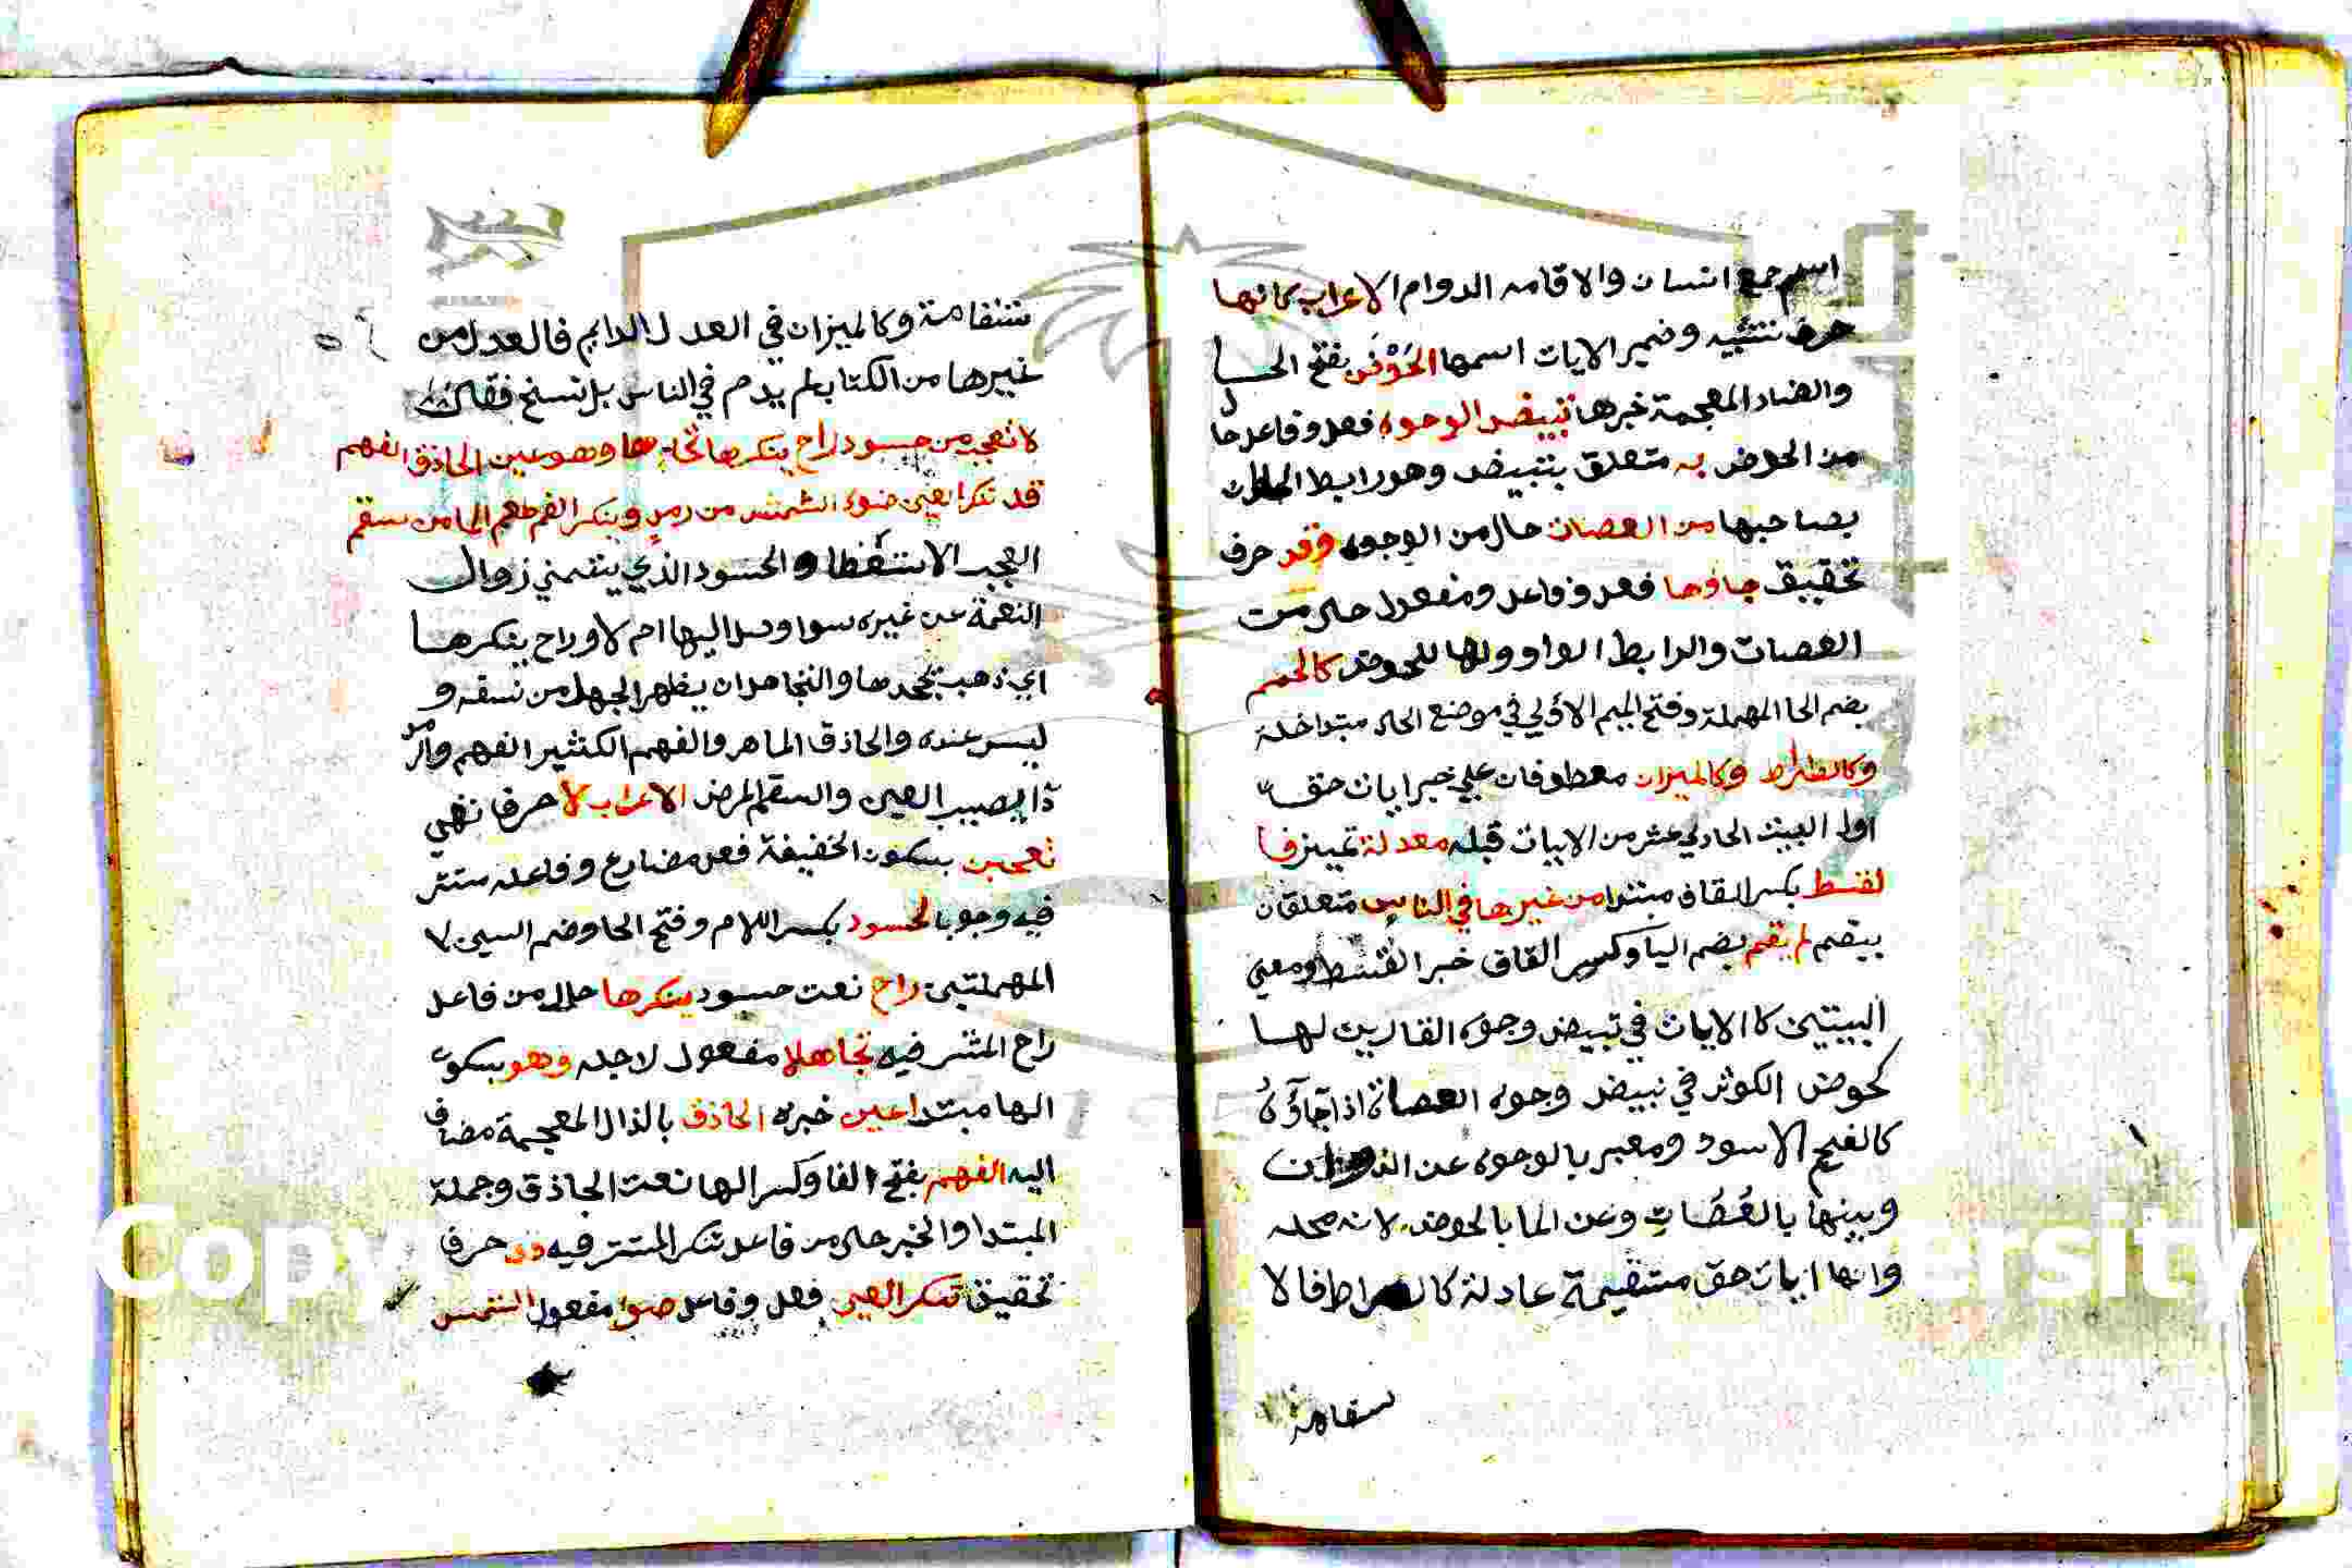 اسم جمع انسان والاقامه الدوام الاعراب كانها
حرف تشبيه وضمير الايات اسمها الحَوْض بفتح الحا
والضاد المعجمة خبرها تبيض الوجوه فعل وفاعل حال
من الحوض به متعلق بتبيض وهو رابط الحال
بصاحبها من العصاة حال من الوجوه وقد حرف
تحقيق جاوها فعل وفاعل ومفعول حال من
العصات والرابط الواو والها للحوض كالحمم
بضم الحا المهملة وفتح الميم الاولي في موضع الحال متداخلة
وكالصراط وكالميزان معطوفان علي خبر ايات حق
اول البيت الحادي عشر من الابيات قبله معدلة تمييز فا
لقسط بكسر القاف مبتدا من غيرها في الناس متعلقان
بيقم لم يقم بضم اليا وكسر القاف خبر القسط ومعني
البيتين كا الايات في تبيض وجوه القارين لها
كحوض الكوثر في تبيض وجوه العصاة اذا جاؤه
كالفحم الاسود ومعبر بالوجوه عن الذوات
وبينها بالعُصَات وعن الما بالحوض لانه محله
وانها ايات حق مستقيمة عادلة كالصراط فالا
ستقامة
ستقامة وكالميزان في العدل الدايم فالعدل من
غيرها من الكتاب لم يدم في الناس بل نسخ فقال
لا تعجبن حسود راح ينكرها تجاهلا وهو عين الحاذق الفهم
قد تنكر العين ضوء الشمس من رمد وينكر الفم طعم الما من سقم
العجب الاستعظا والحسود الذي يتمني زوال
النعمة عن غيره سوا وصل اليها ام لا وراح ينكرها
اي ذهب يجحدها والتجاهل ان يظهر الجهل من نسقه و
ليس عنده والحاذق الماهر والفهم الكثير الفهم والرمد
دا يصيب العين والسقم المرض الاعراب لا حرف نهي
تعجبن بسكون الخفيفة فعل مضارع وفاعله مستتر
فيه وجوبا لحسود بكسر اللام وفتح الحا وضم السين لا
المهملتين راح نعت حسود ينكرها حال من فاعل
راح المستتر فيه تجاهلا مفعول لاجله وهو بسكون
الها مبتدا عين خبره الحاذق بالذال المعجمة مضاف
اليه الفهم بفتح الفا وكسر الها نعت الحاذق وجملة
المبتدا والخبر حال من فاعل تنكر المستتر فيه قد حرف
تحقيق تنكر العين فعل وفاعل ضوا مفعول الشمس